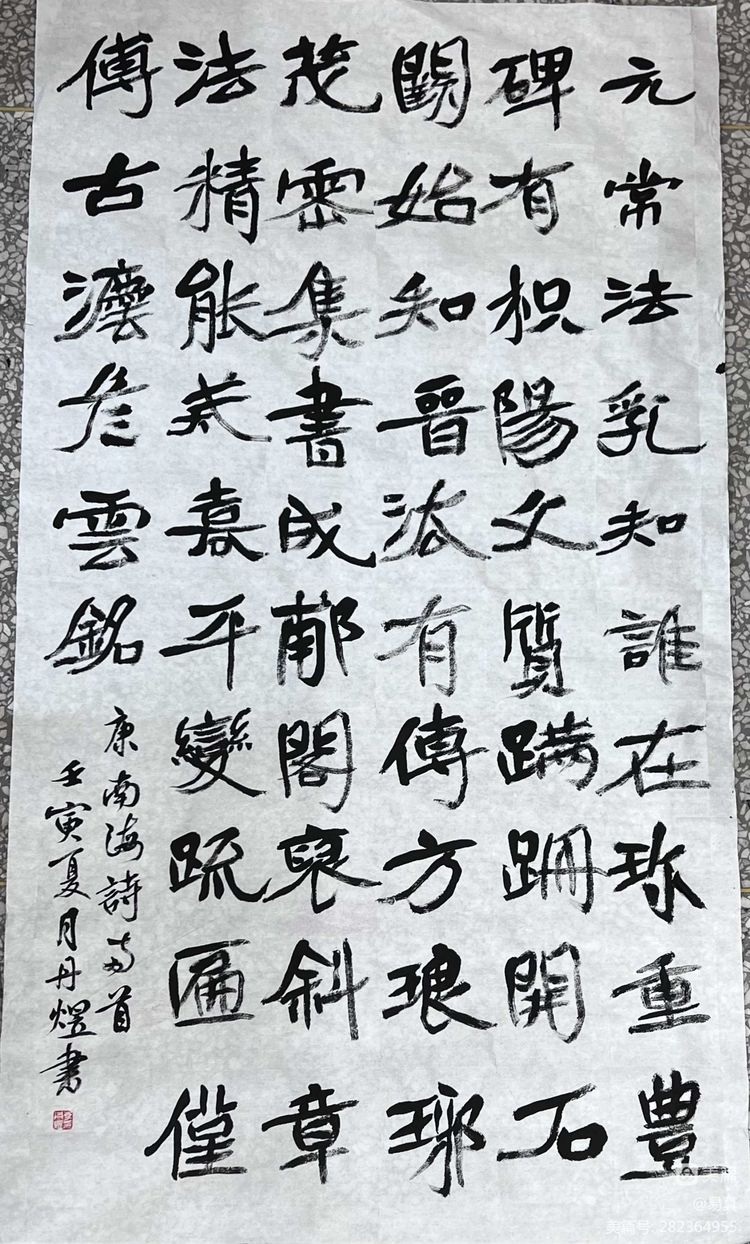 元常法乳知誰在珎重豊
碑有枳陽文質蹒跚開石
闕始知晉法有傳方琅琊
茂密集書成郙閣裒斜章
法精能嘉平變疏匾僅
傳古灋雲銘
康南海詩两首
壬寅夏月丹煜書
美篇号: 282364955